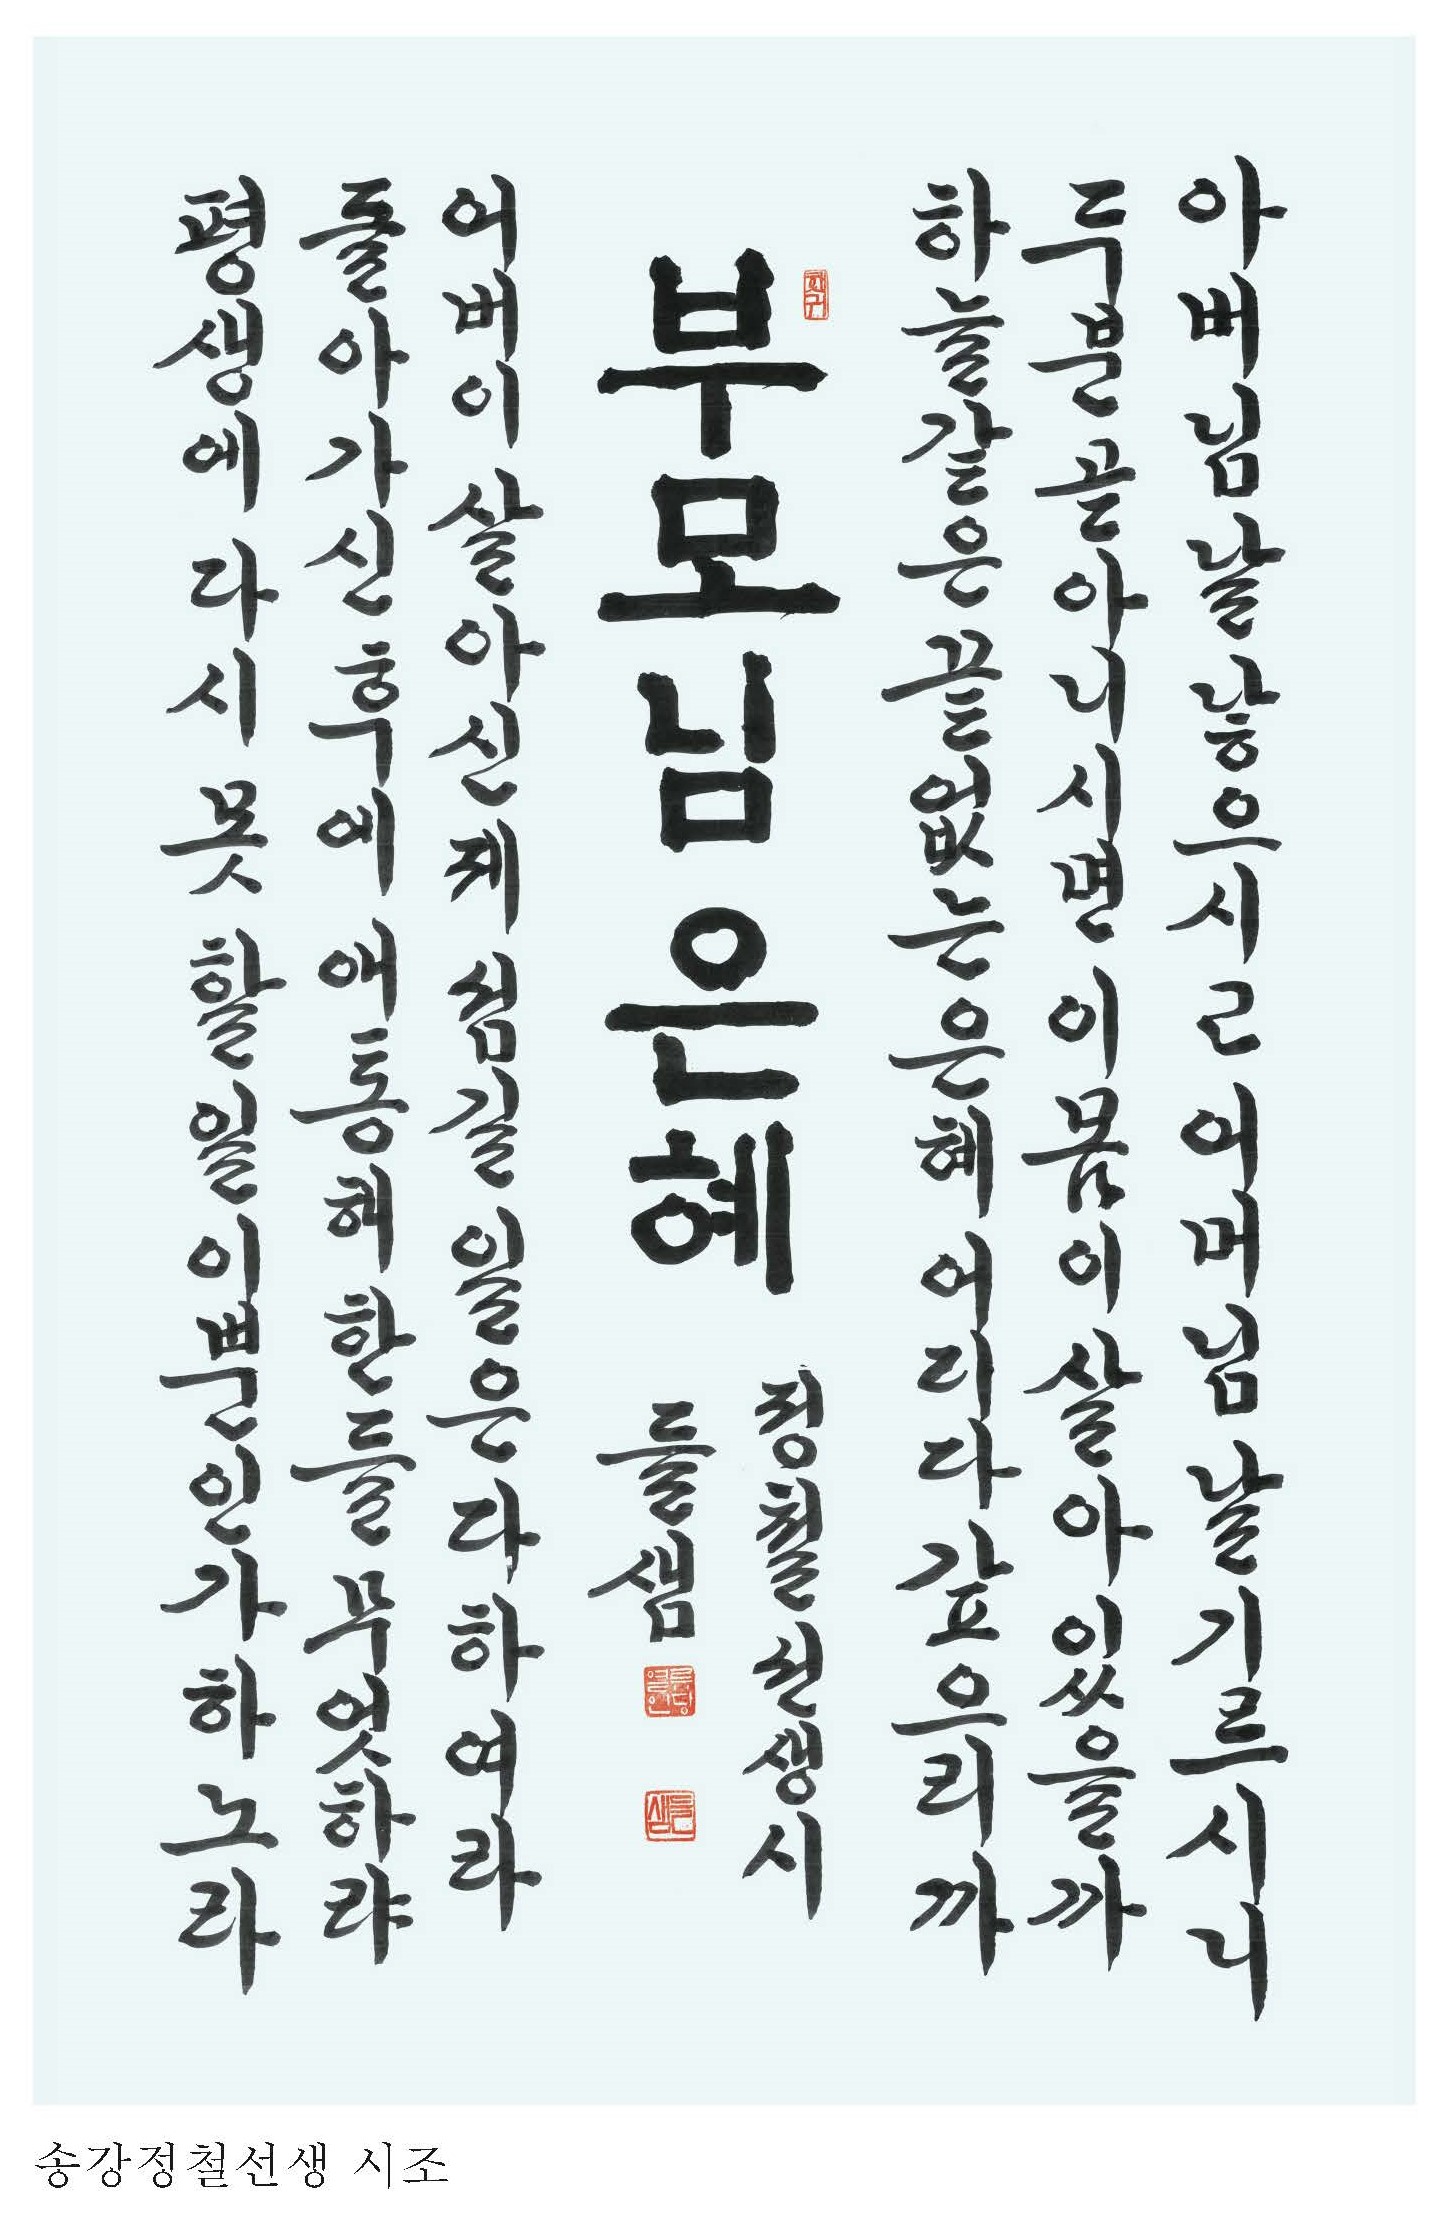 아버님 날 낳으시고 어머님 날 기르시니
두분 곧 아니시면 이 몸이 살아 있을까
하늘같은 끝없는 은혜 어디다 갚으리까
부모님 은혜
정철선생시
들샘
어버이 살아신제 섬길 일은 다 하여라
돌아가신 후에 애통해 한들 무엇하랴
평생에 다시 못 할 일 이뿐인가 하노라
송강정철선생 시조